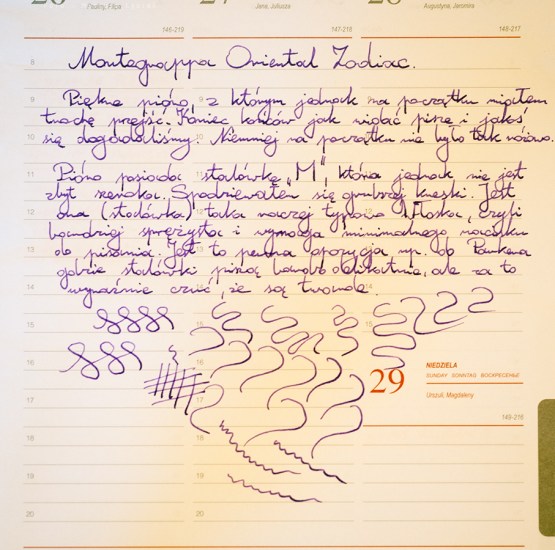 26 27 28
Pauliny, Filipa Jana, Juliusza Augustyna, Jaromira
146-219 147-218 148-217
8 Montegrappa Oriental Zodiac.
9 Piękne pióro, z którym jednak na początku miałem
trochę przejść. Koniec końców jak widać piszę i jakoś
10 się dogadaliśmy. Niemniej na początku nie było tak różowo.
11 Pióro posiada stalówkę „M", która jednak nie jest
zbyt szeroka. Spodziewałem się grubszej kreski. Jest
12 ona (stalówka) taka raczej typowo Włoska, czyli
bardziej sprężysta i wymaga minimalnego nacisku
13 do pisania. Jest to pewna opozycja np. do Parkera
gdzie stalówki piszą bardzo delikatnie, ale za to
14 wyraźnie czuć, że są twarde.
15 15
16
17
18 18
19 19
20 20
29
NIEDZIELA
SUNDAY SONNTAG ВОСКРЕСЕНЬЕ
Urszuli, Magdaleny
149-216